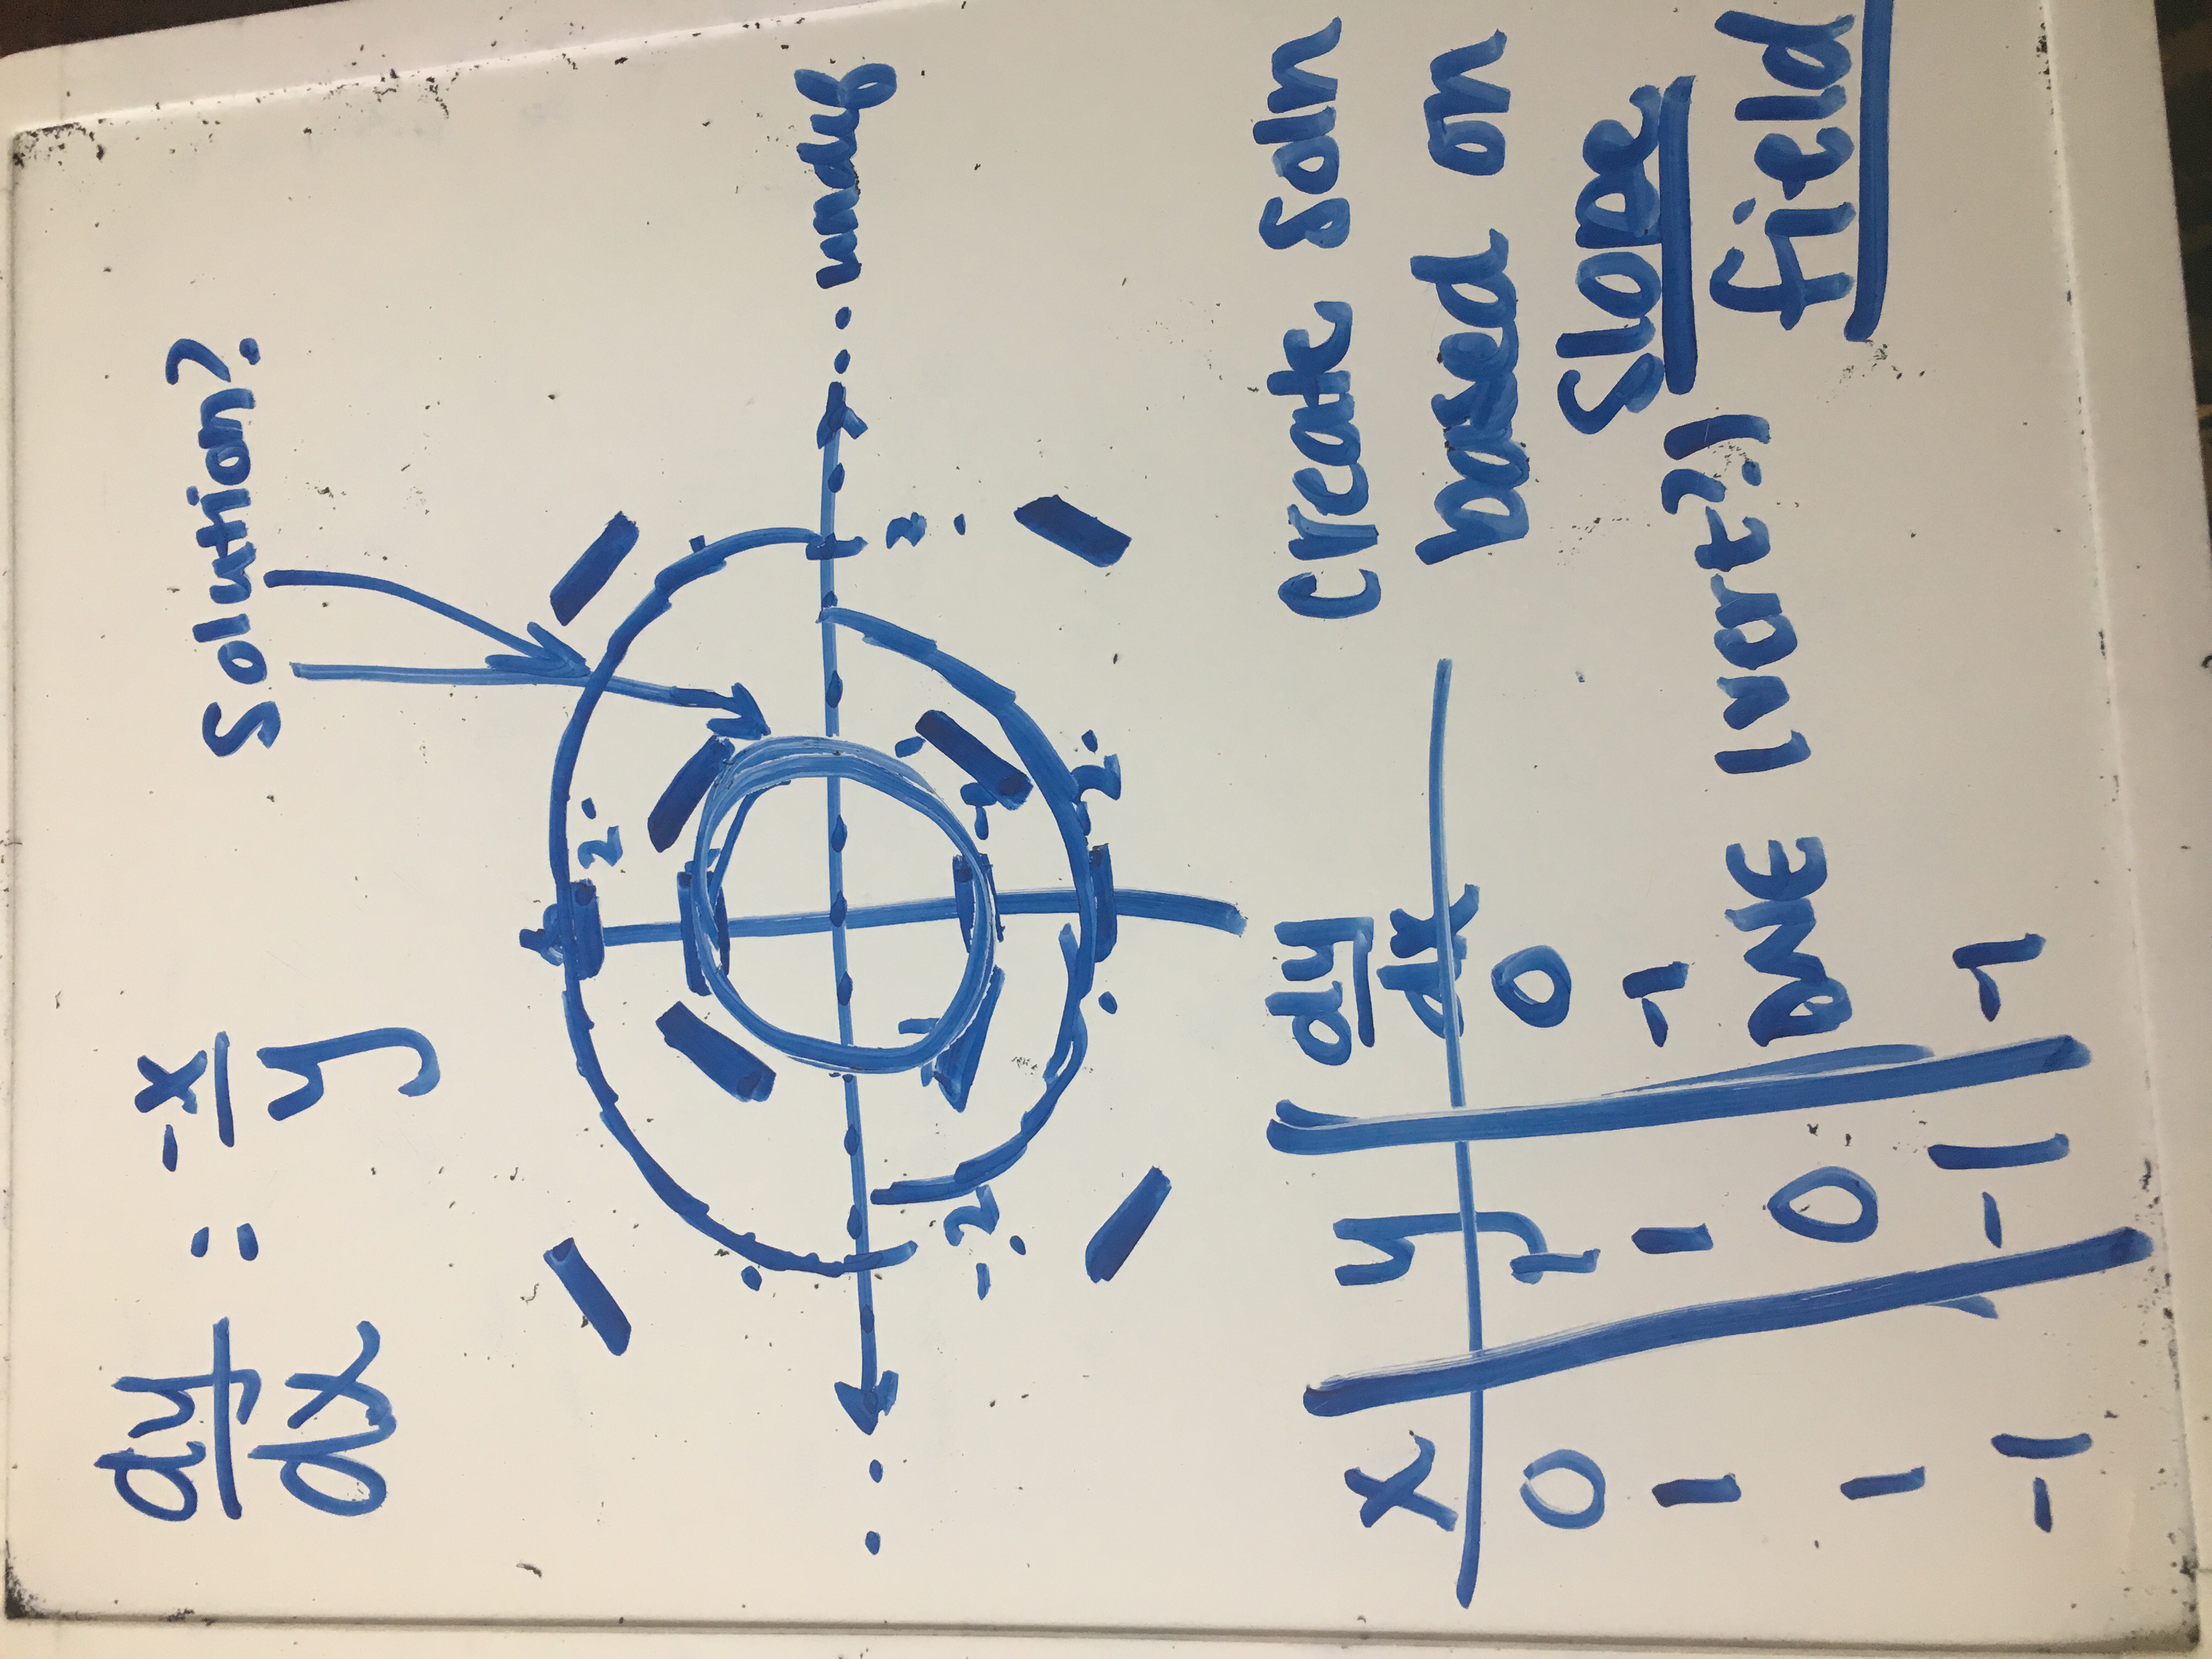 dy/dx = -x/y
Solution?
2
1
undef
2
-2
-1
-2
x y dy/dx
0 1 0
1 1 -1
1 0 DNE (vert?)
-1 -1 -1
create soln
based on
slope
field